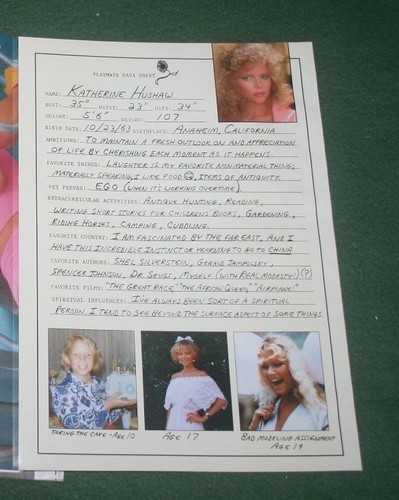 PLAYMATE DATA SHEET
NAME: KATHERINE HUSHAW
BUST: 35" WAIST: 23" HIPS: 34"
HEIGHT: 5'6" WEIGHT: 107
BIRTH DATE: 10/23/63 BIRTHPLACE: ANAHEIM, CALIFORNIA
AMBITIONS: TO MAINTAIN A FRESH OUTLOOK ON AND APPRECIATION
OF LIFE BY CHERISHING EACH MOMENT AS IT HAPPENS.
FAVORITE THINGS: LAUGHTER IS MY FAVORITE NON-MATERIAL THING;
MATERIALLY SPEAKING, I LIKE FOOD, ITEMS OF ANTIQUITY.
PET PEEVES: EGO (WHEN IT'S WORKING OVERTIME).
EXTRACURRICULAR ACTIVITIES: ANTIQUE HUNTING, READING,
WRITING SHORT STORIES FOR CHILDRENS BOOKS, GARDENING,
RIDING HORSES, CAMPING, CUDDLING.
FAVORITE COUNTRY: I AM FASCINATED BY THE FAR EAST, AND I
HAVE THIS INCREDIBLE INSTINCT OR YEARNING TO GO TO CHINA
FAVORITE AUTHORS: SHEL SILVERSTEIN, GERALD JAMPOLSKY,
SPENCER JOHNSON, DR. SEUSS, MYSELF (WITH REAL MODESTY!)
FAVORITE FILMS: "THE GREAT RACE," "THE AFRICAN QUEEN," "AIRPLANE!"
SPIRITUAL INFLUENCES: I'VE ALWAYS BEEN SORT OF A SPIRITUAL
PERSON. I TEND TO SEE BEYOND THE SURFACE ASPECT OF SOME THINGS
TAKING THE CAKE - AGE 10
AGE 17
BAD MODELING ASSIGNMENT
AGE 19